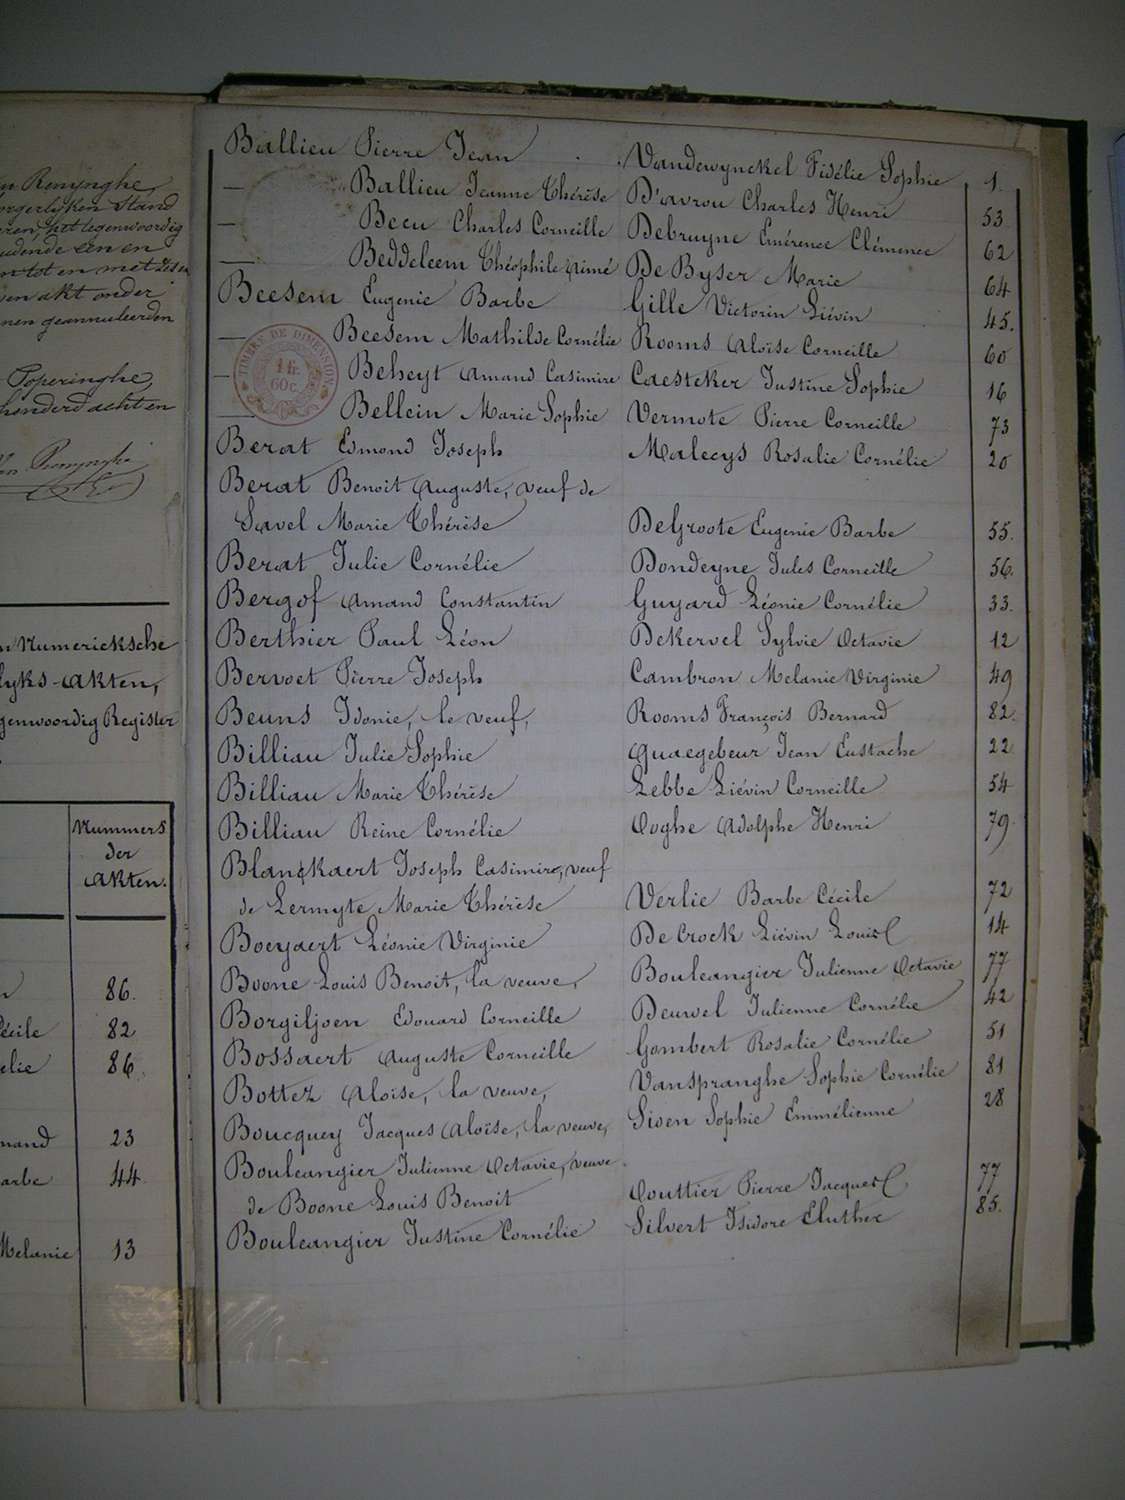 Renynghe,
orgerlyken Stand
eren, het tegenwoordig
udende een en
n tot en met zes en
en akt onder
nen geannuleerden
Poperinghe,
honderd acht en
n Numericksche
lyks-akten,
genwoordig Register
Nummers
der
akten.
86.
écile 82
elie 86
mand 23
arbe 44
Melanie 13
Ballieu Pierre Jean Vandewynckel Fidélie Sophie 1.
— Ballieu Jeanne Thérèse D'avrou Charles Henri 53
— Becu Charles Corneille Debruyne Emérence Clémence 62
— Beddeleem Théophile Aimé De Byser Marie 64
Beesem Eugenie Barbe Gille Victorin Liévin 45.
— Beesem Mathilde Cornélie Rooms Aloïse Corneille 60
TIMBRE DE DIMENSION
1 fr.
60 c.
— Beheyt Amand Casimire Caesteker Justine Sophie 16
— Bellein Marie Sophie Vermote Pierre Corneille 73
Berat Edmond Joseph Malecys Rosalie Cornélie 20
Berat Benoit Auguste, veuf de
Savel Marie Thérèse DeGroote Eugenie Barbe 55.
Berat Julie Cornélie Dondeyne Jules Corneille 56.
Bergof Amand Constantin Guyard Léonie Cornélie 33.
Berthier Paul Léon Dekervel Sylvie Octavie 12
Bervoet Pierre Joseph Cambron Melanie Virginie 49
Beuns Idonie, le veuf, Rooms François Bernard 82.
Billiau Julie Sophie Quaegebeur Jean Eustache 22
Billiau Marie Thérèse Lebbe Liévin Corneille 54
Billiau Reine Cornélie Ooghe Adolphe Henri 79.
Blanckaert Joseph Casimire, veuf
de Lermyte Marie Thérèse Verlie Barbe Cécile 72
Boeyaert Léonie Virginie De Crock Liévin Louis 14
Boone Louis Benoit, la veuve, Bouleangier Julienne Octavie 77
Borgiljoen Edouard Corneille Deuwel Julienne Cornélie 42
Bossaert Auguste Corneille Gombert Rosalie Cornélie 51
Bottez Aloïse, la veuve, Vanspranghe Sophie Cornélie 81
Boucquey Jacques Aloïse, la veuve, Sioen Sophie Emmélienne 28
Bouleangier Julienne Octavie, veuve
de Boone Louis Benoit Couttier Pierre Jacques 77
Bouleangier Justine Cornélie Silvert Isidore Eluther 85.